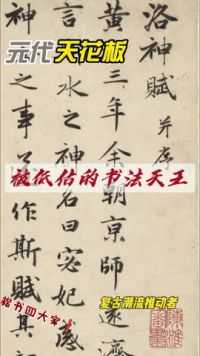 元代天花板
洛神賦 并序
黄三年余朝京師還濟
言水之神名曰宓妃感
神之事作斯賦其
被低估的书法天王
楷书四大家
复古潮流推动者